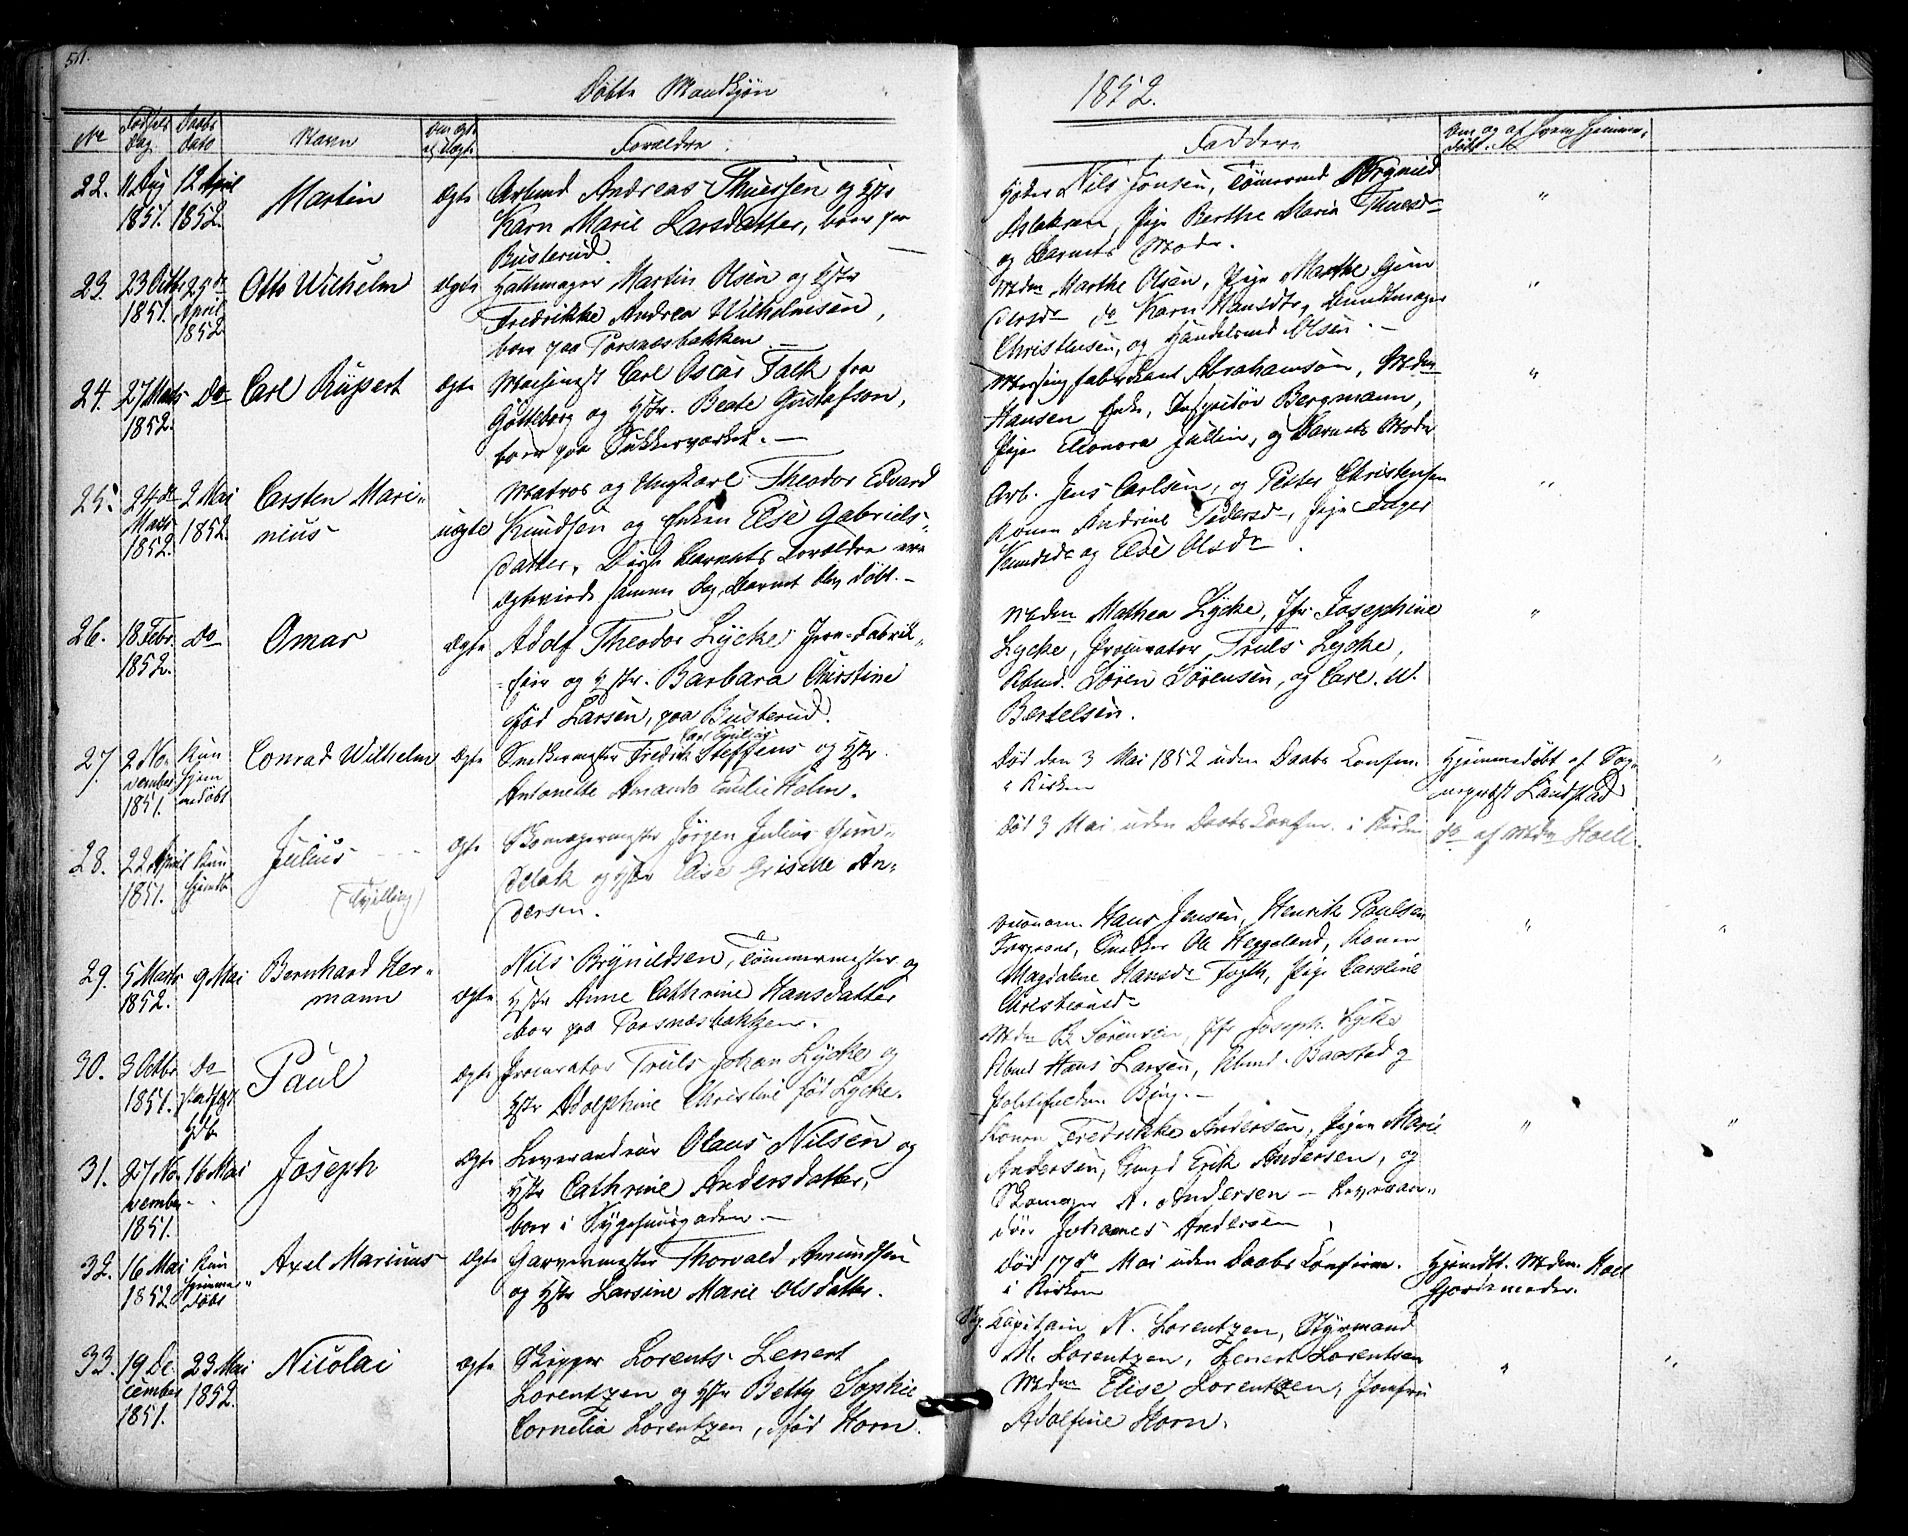 Døbte Mandkjøn
1852.
No
Fødsels Dag
Daabs Dato
Navn
Forældre.
Faddere
22. 11 Aug 1851. 12 April 1852. Martin Ægte
Arbmd Andreas Thuersen og Hstr
Karn Marie Larsdatter, boer paa
Busterud.
Nils Jonsen, Tømermd Brynild
Aslaksen, Pige Berthe Maria Thuesdr
og Barnets Moder.
23. 23 Octbr 1851. 25de April 1852 Otto Wilhelm Ægte
Hattemager Martin Olsen og Hstr
Fredrikke Andrea Wilhelmsen,
boer paa Torsnæsbakken.
Mdm Marthe Olsen, Pige Marthe
Karn Hansdtr,
Christensen, og Handelsmd Olsen.
24. 27 Marts 1852. Do Carl Rupert Ægte
Machinist Carl Oscar Falk fra
Gøtteborg og Hstr. Beate Gustafson,
boer paa Sukkerværket.
Messingfabrikant Abrahamson, Mdm
Hansen Enke, Inspectør Bergmann,
Pige Eleonora Fallin, og Barnets Moder
25. 24de Marts 1852. 2 Mai 1852. Carsten Mari-
nius uægte
Matros og Ungkarl Theodor Edvard
Knudsen og Enken Else Gabriels-
datter. Disse Barnets Forældre ere
Ægteviede samme Dag Barnet blev døbt.
Arb. Jens Carlsen, og Petter Christensen
Konen Andrine Pedersdr, Pige Inger
Knudsdr og Else Olsdr.
26. 18 Febr. 1852. Do Omar Ægte
Adolf Theodor Lycke Jern-Fabrik-
eur og Hstr. Barbara Christine
fød Larsen, paa Busterud.
Mdm Mathea Lycke, Jfr Josephine
Lycke, Procurator Truls Lycke,
Kbmd. Søren Sørensen, og Carl. W.
Bertelsen.
27. 2 No-
vember 1851. Kun hjem
medøbt Conrad Wilhelm Ægte
Snedkermester Fredrik Carl Emilius Steffens og Hstr.
Antonette Amanda Emilie Holm.
Død den 3 Mai 1852 uden Daabs Confirm.
i Kirken
Hjemmedøbt af Sog-
nepræst Landstad
28. 22 April 1851. Kun hjemdb Julius
(Tvilling) Ægte
Skomagermester Jørgen Julius
og Hstr Elise Griselle An-
dersen.
Død 3 Mai uden Daabs Confirm. i Kirken
do af Mdm Holl.
29. 5 Marts 1852. 9 Mai Bernhard Her-
mann Ægte
Nils Brynildsen, Tømmermester og
Hstr Anne Cathrine Hansdatter
boer paa Torsnæsbakken.
Hans Jensen, Henrik Paulsen
Snedker Ole Heggeland, Konen
Magdalene Hansdr Fogth, Pige Caroline
Christiansdr
30. 3 Octbr 1851. Do Paul Ægte
Procurator Truls Johan Lycke og
Hstr Adolphine Christine fød Lycke.
Mdm B. Sørensen, Jfr Joseph. Lycke
Kbmd Hans Larsen, Kbmd. Baastad og
Politifuldm Bing.
31. 27 No-
vember 1851. 16 Mai Joseph Ægte
Leverandeur Olaus Nilsen og
Hstr Cathrine Andersdatter,
boer i Sygehuusgaden.
Konen Fredrikke Andersen, Pigen Marie
Andersen, Erik Andersen, og
Skomager A. Andersen - Leveran-
døir Johannes Andersen
32. 16 Mai 1852 Kun hjemme-
døbt Axel Marinus Ægte
Garvermester Thorvald Amundsen
og Hstr Larsine Marie Olsdatter.
Død 17de Mai uden Daabs Confirm.
i Kirken
Hjemdt. Mdm. Holl
Gjordemoder.
33. 19 De-
cember 1851. 23 Mai 1852. Nicolai Ægte
Skipper Lorents Lenert
Lorentzen og Hstr Betty Sophie
Cornelia Lorentzen, fød Horn.
Capitain N. Lorentzen, Styrmand
M. Lorentzen, Lenert Lorentsen
Mdm Elise Lorentzen, Jomfru
Adolfine Horn.